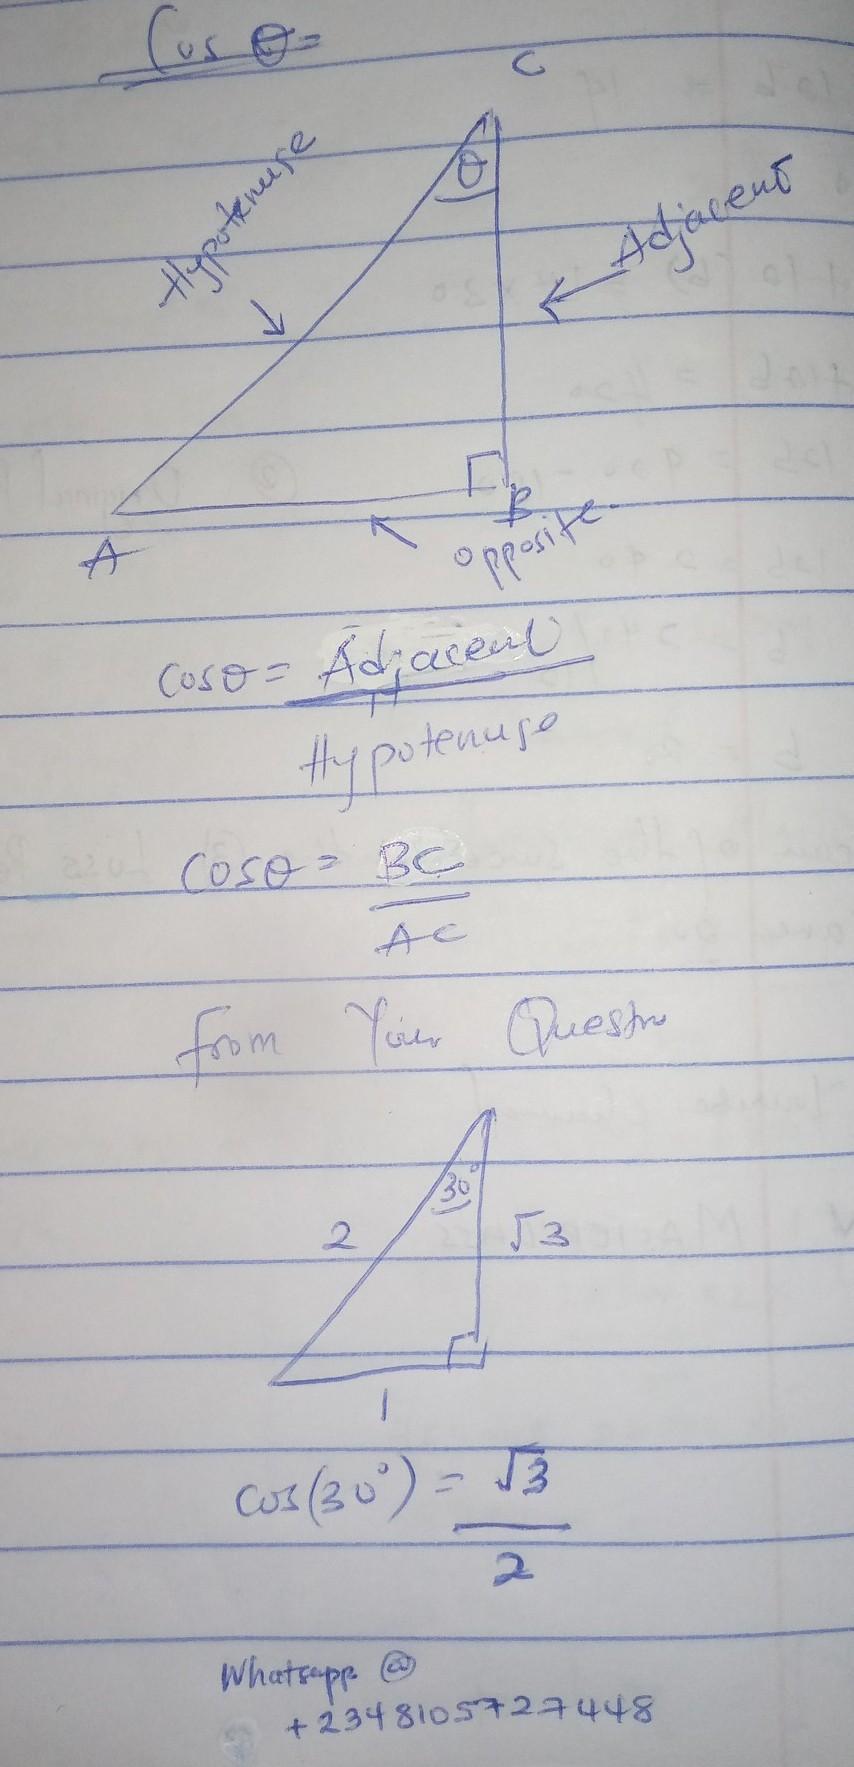 Cos θ=
C
θ
Hypotenuse
Adjacent
A
B
opposite.
cosθ= Adjacent
Hypotenuse
cosθ= BC
AC
from Your Questn
30°
2
√3
1
cos(30°) = √3
2
Whatsapp @
+2348105727448